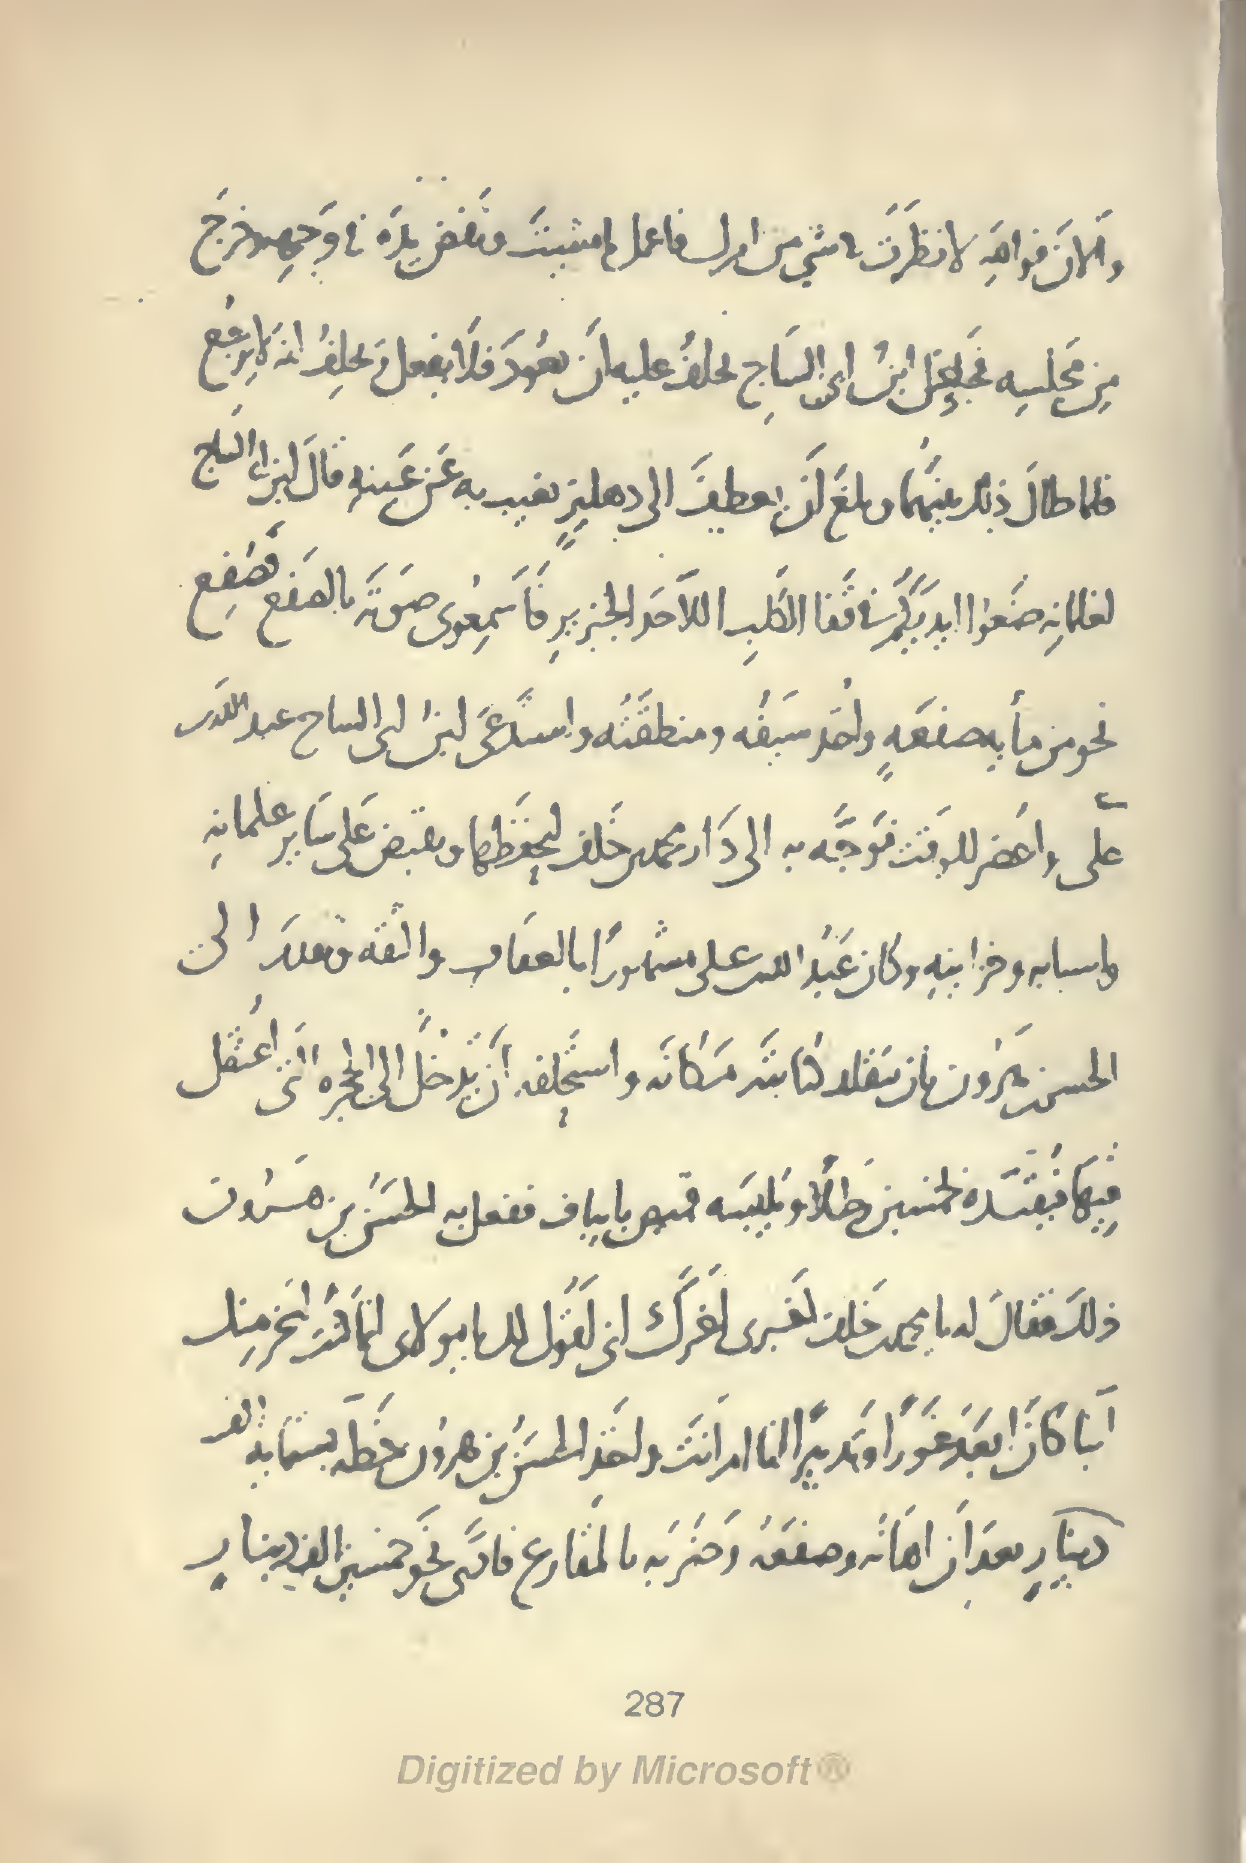 والآن فوالله لا نظرت في شيء من امرك فاعمل ما شئت ونفض يده في وجهه وخرج
من مجلسه فجعل ابن ابي الساج يحلف عليه أن يعود فلا يفعل ويحلف انه لا يرجع
فلما طال ذلك بينهما وبلغ أن يعطف الى دهليز يغيب به عن عينه قال ابن ابي الساج
لغلمانه ضعوا ايديكم في قفا الكلب اللاحد الخنزير فأسمعوني صوته بالصفع فصفع
نحو من مأيه صفعة واخذ سيفه ومنطقته واستدعى ابن ابي الساج عبد الله بن
على واحضر للوقت فوجه به الى دار محمد بن خلف ليحفظها ويقبض على ساير غلمانه
واسبابه وخزاينه وكان عبد الله بن على مشهورًا بالعفاف والثقه وتقدم الى
الحسن بن هرون بان يتقلد كتابته مكانه واستحلفه أن يدخل الى الحجره التي اعتقل
فيها فيقيده بخمسين رطلًا ويلبسه قميص بابياف ففعل به الحسن بن هرون
ذلك فقال له يا محمد بن خلف لغيرى اغرك اني اقول لك يا مولاى انما كنت اسخر منك
ابنا كان ابعد غورًا وتدبيرًا انا ام انت واخذ الحسن بن هرون خطه بستمايه الف
دينار بعد ان اهانه وصفعه وضربه بالمقارع فادى نحو خمسين الف دينار
287
Digitized by Microsoft®